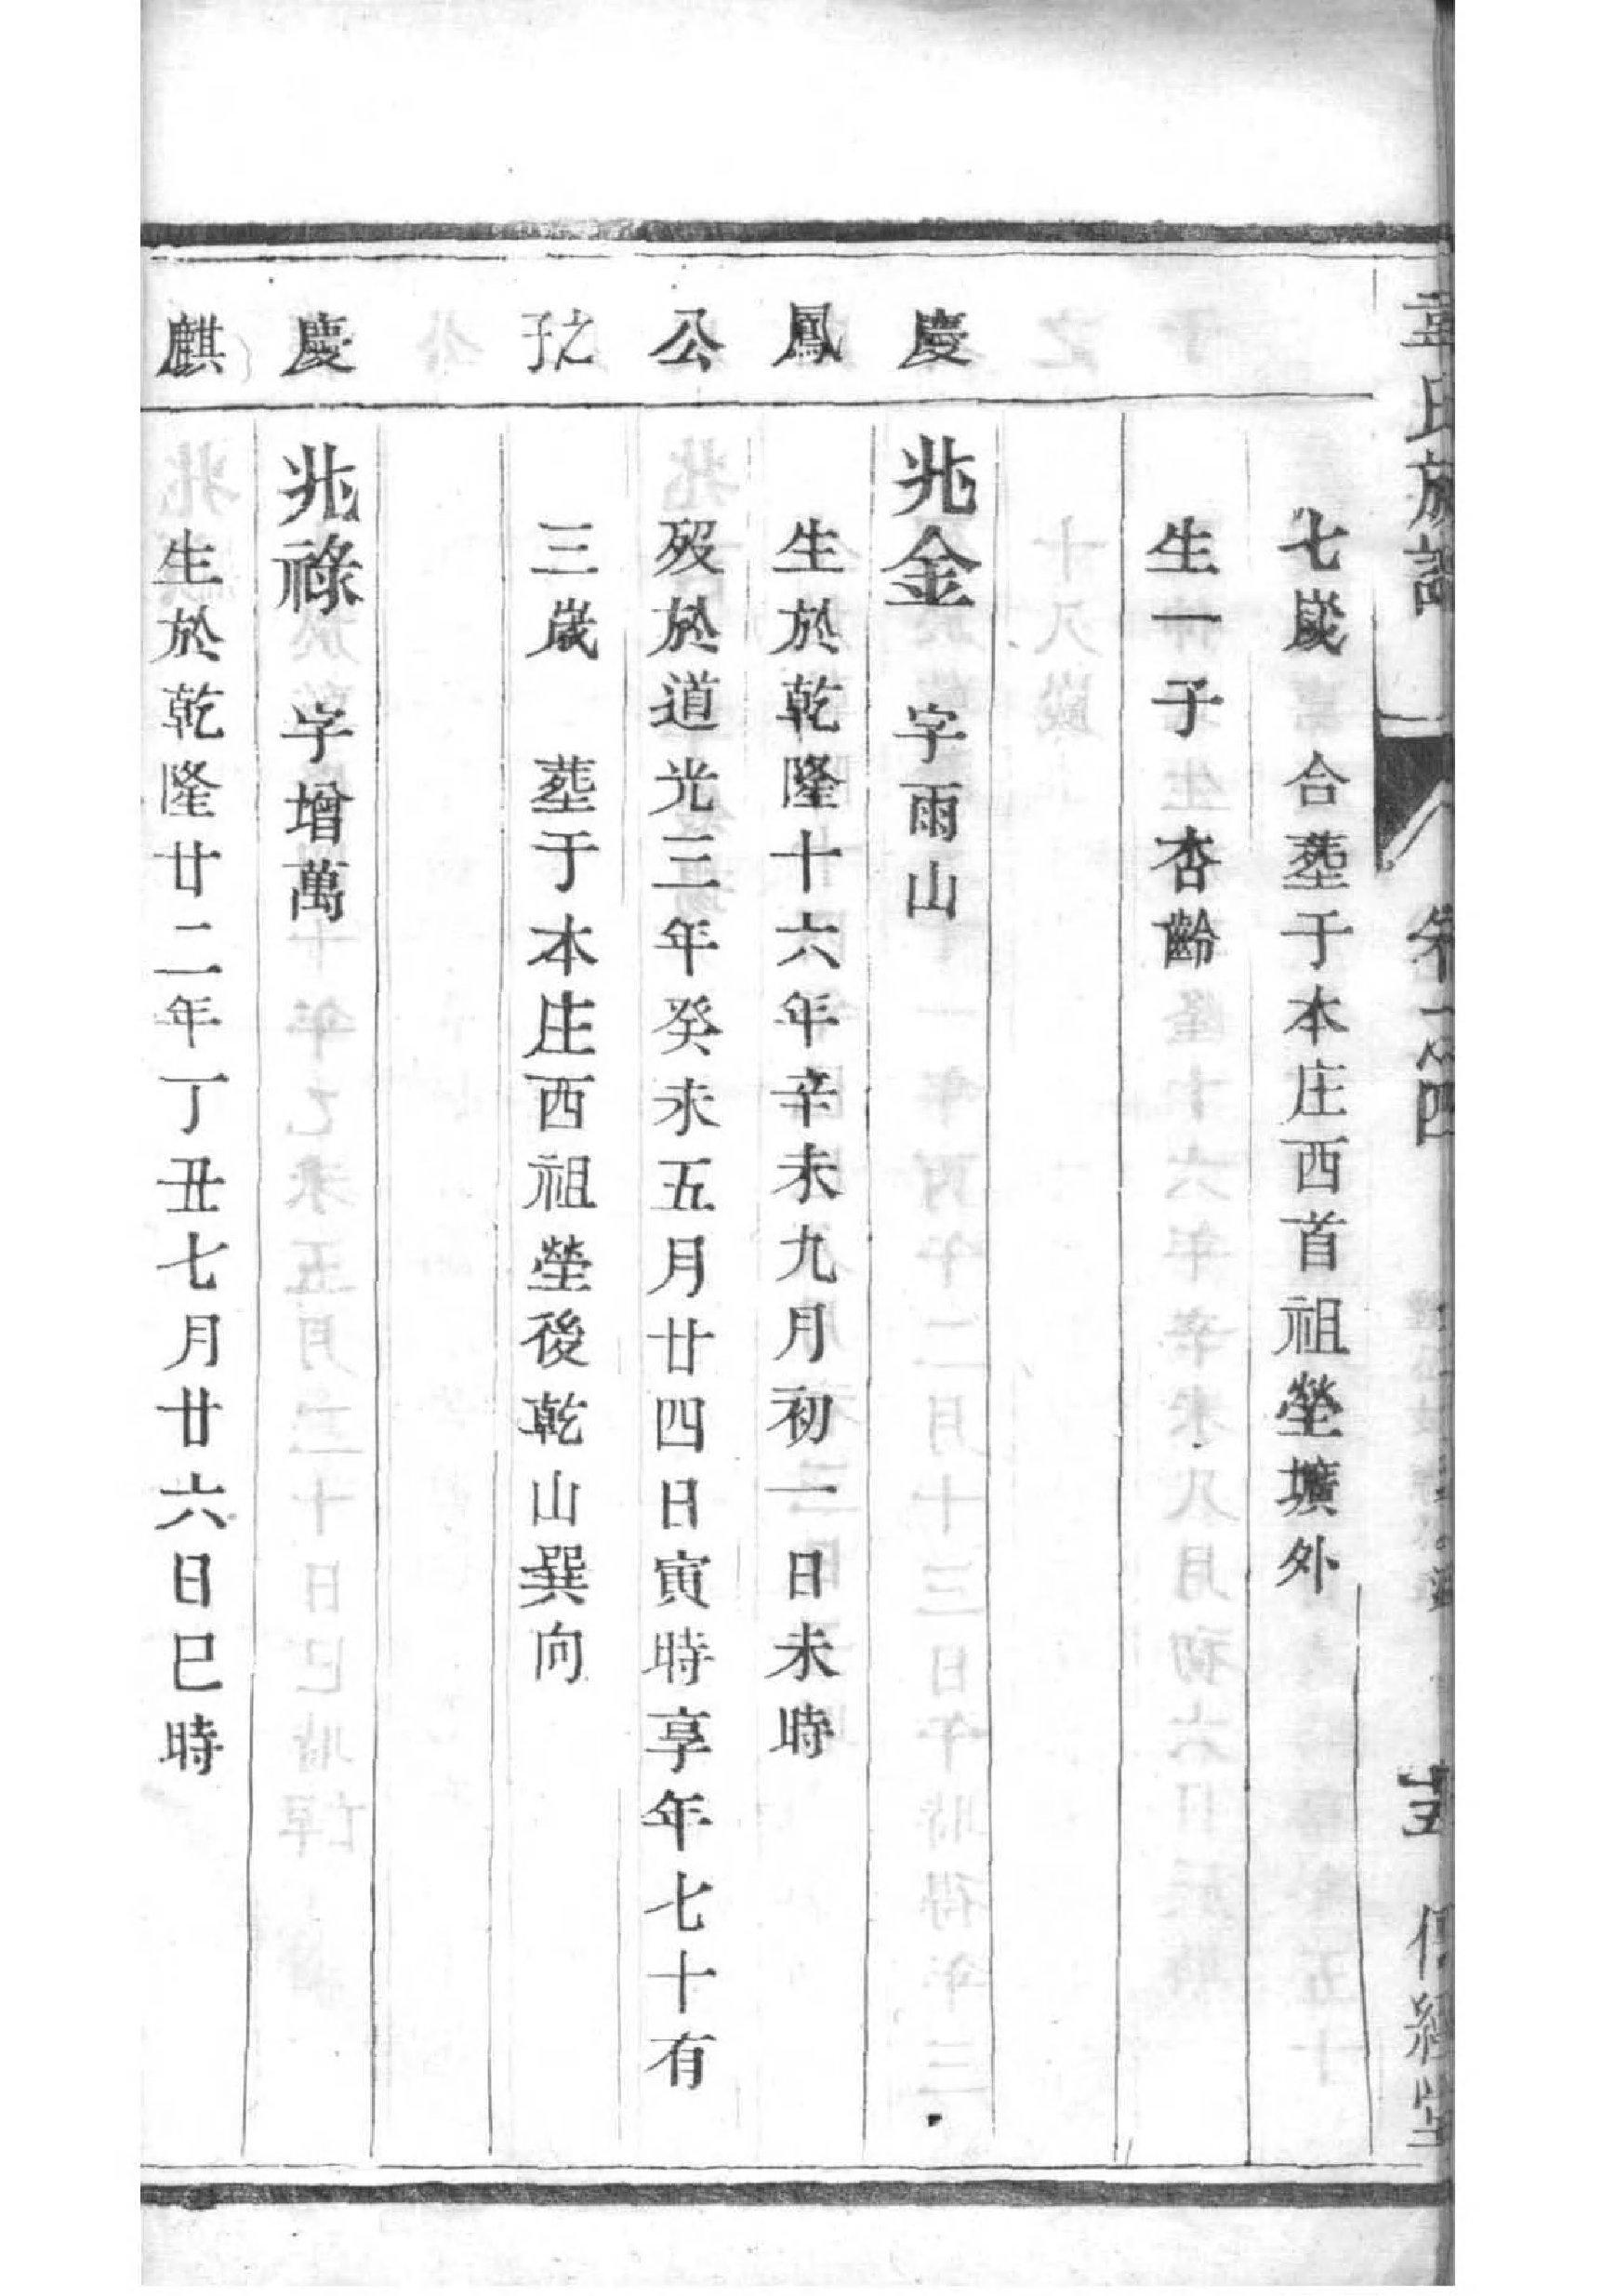 氏族譜 卷一之四
七嵗 合塟于本庄西首祖塋壙外
生一子杏齡
慶鳳公之子
兆金 字雨山
生於乾隆十六年辛未九月初一日未時
歿於道光三年癸未五月廿四日寅時享年七十有
三嵗 塟于本庄西祖塋後乾山巽向
慶麒
兆祿 字增萬
生於乾隆廿二年丁丑七月廿六日巳時